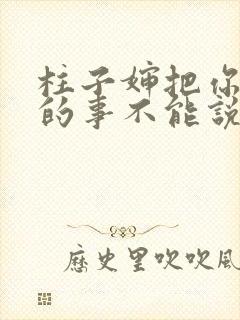 柱子婶把你
的事不能說
歷史里吹吹風